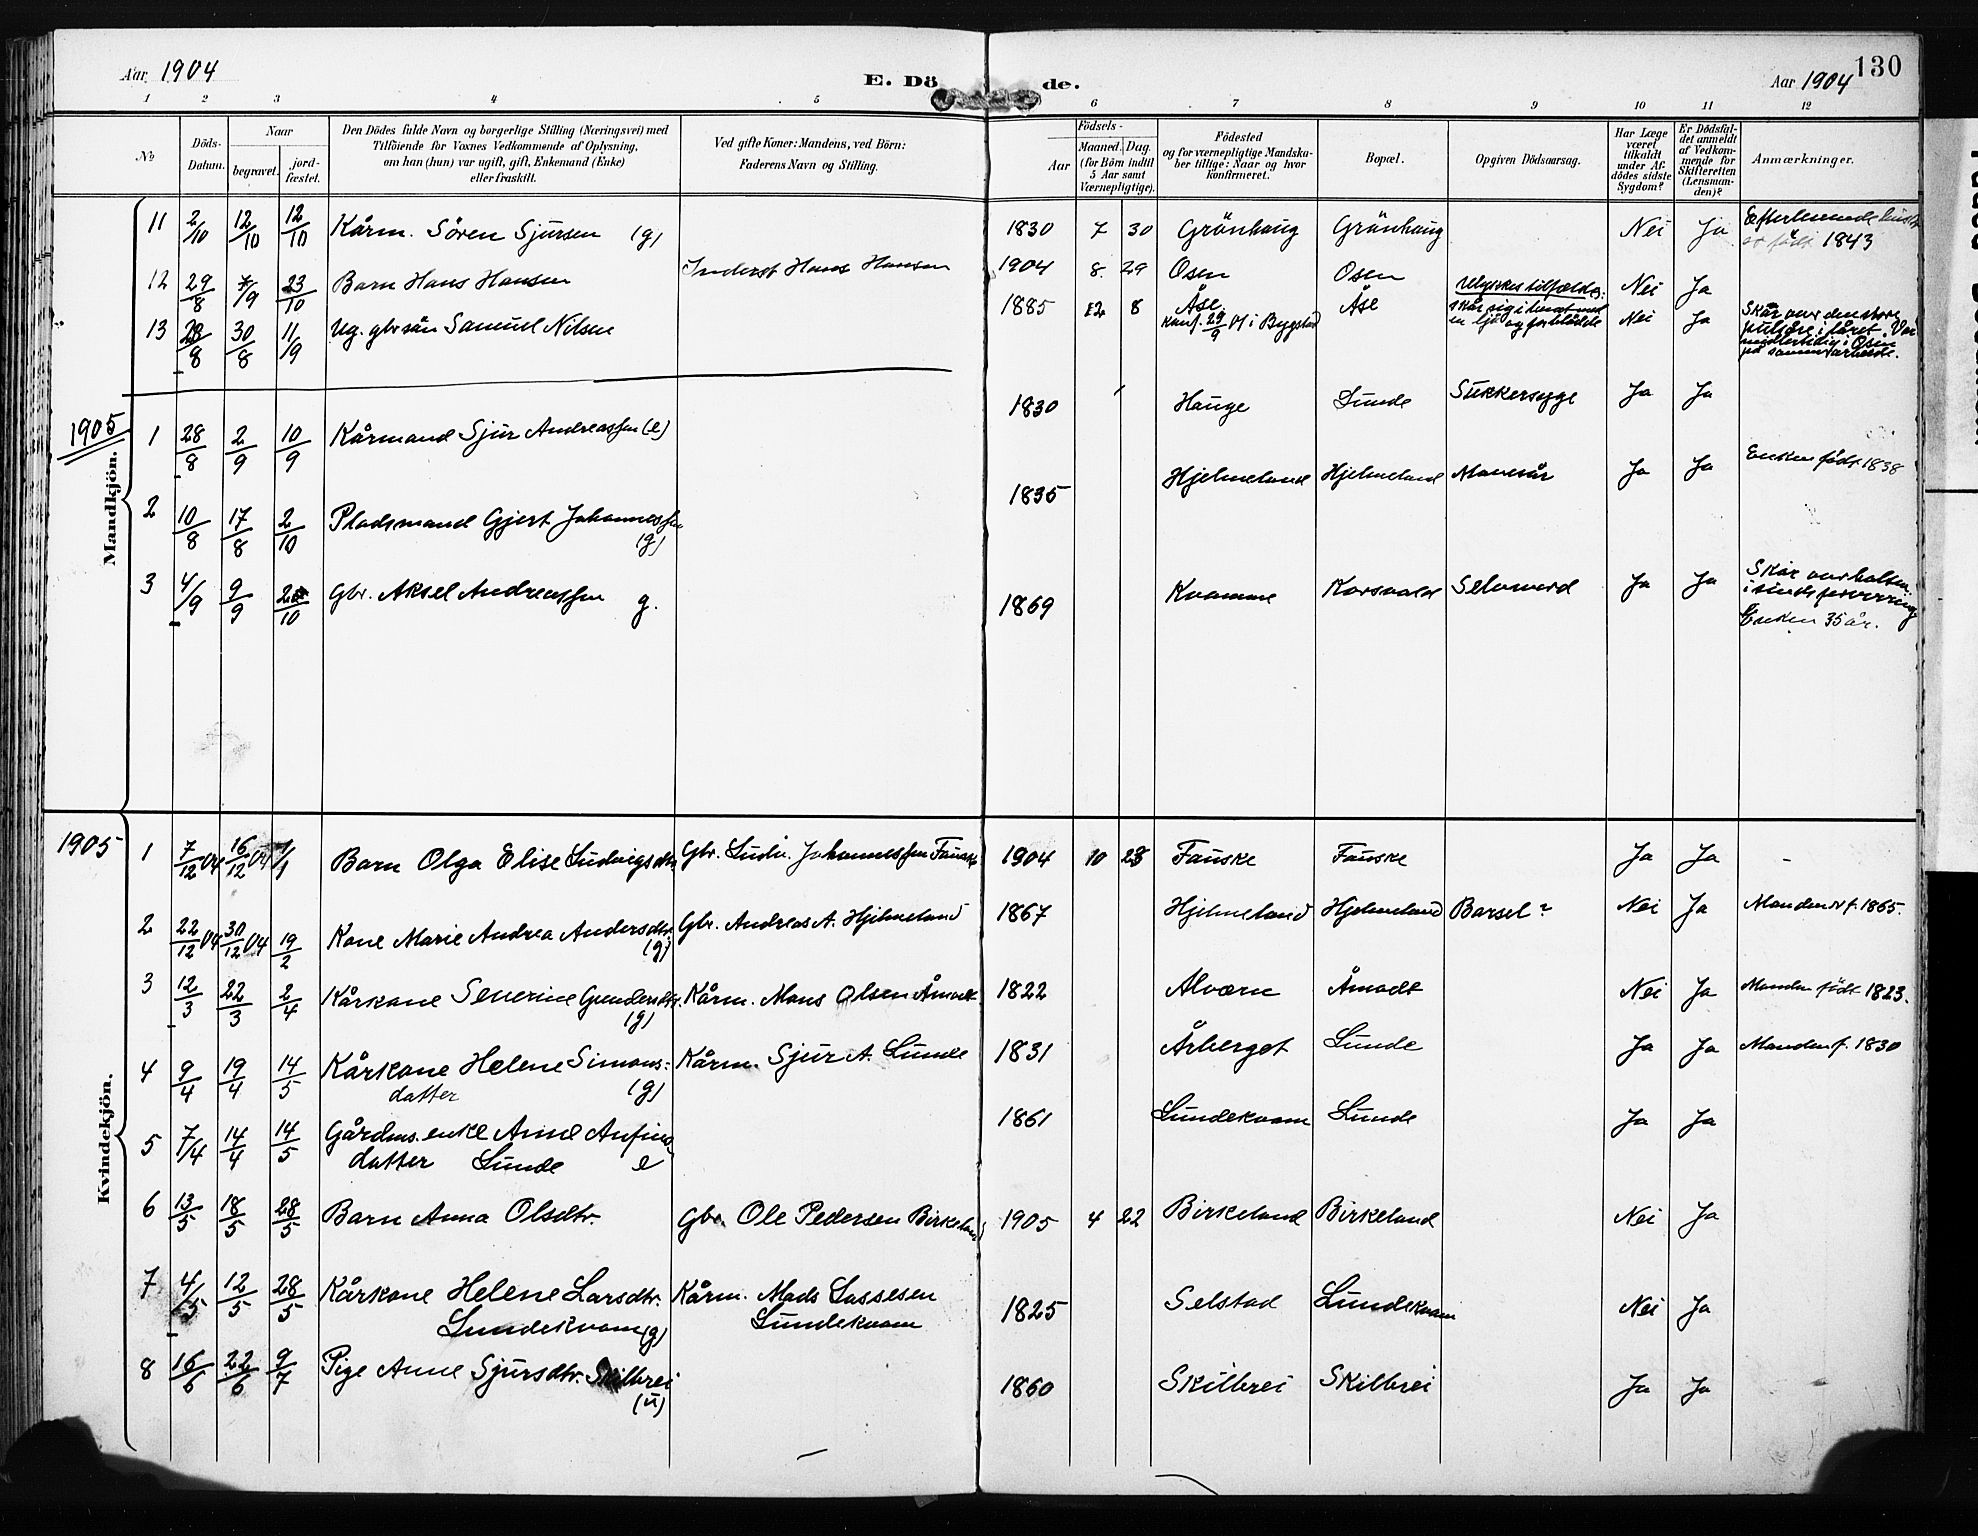 Aar 1904
E. Dö
de.
Aar 1904
130
1 2 3 4 5 6 7 8 9 10 11 12
No
Döds-
Datum.
Naar
begravet.
jord-
fæstet.
Den Dödes fulde Navn og borgerlige Stilling (Næringsvei) med
Tilföiende for Voxnes Vedkommende af Oplysning,
om han (hun) var ugift, gift, Enkemand (Enke)
eller fraskilt.
Ved gifte Koner: Mandens, ved Börn:
Faderens Navn og Stilling.
Födsels-
Aar
Maaned. Dag.
(for Börn indtil
5 Aar samt
Værnepligtige).
Födested
og for værnepligtige Mandska-
ber tillige: Naar og hvor
konfirmeret.
Bopæl.
Opgiven Dödsaarsag.
Har Læge
været
tilkaldt
under Af-
dödes sidste
Sygdom?
Er Dödsfal-
det anmeldt
af Vedkom-
mende for
Skifteretten
(Lensman-
den)?
Anmærkninger.
Mandkjön.
11 2/10 12/10 12/10 Kårm. Sören Sjursen (g) 1830 7 30 Grönhaug Grönhaug Nei Ja Efterlevende
er födt 1843
12 29/8 7/9 23/10 Barn Hans Hansen Inderst Hans Hansen 1904 8 29 Osen Osen Nei Ja
13 23/8 30/8 11/9 Ug. gbrsön Samuel Nilsen 1885 12 8 Åse Åse Ulykkestilfælde: Nei Ja Skår over den store
konf. 29/9 01 i Bygstad skår sig i låret med pulsåre i låret. Var
en ljå og forblödde midlertidig i Osen
på sommerarbeide.
1905
1 28/8 2/9 10/9 Kårmand Sjur Andreassen (e) 1830 Hauge Lunde Sukkersyge Ja Ja
2 10/8 17/8 2/10 Pladsmand Gjert Johannessen 1835 Hjelmeland Hjelmeland Mavesår Ja Ja Enken födt 1838
(g)
3 4/9 9/9 /10 Gbr. Aksel Andreassen g. 1869 Kvamme Korsvold Selvmord Ja Ja Skar over halsen
i sindsforvirring
Enken 35 år.
Kvindekjön.
1905
1 7/12 04 16/12 04 1/1 Barn Olga Elise Ludvigsdtr. Gbr. Ludv. Johannessen Fauske 1904 10 28 Fauske Fauske Ja Ja -
2 22/12 04 30/12 04 19/2 Kone Marie Andrea Andersdtr. Gbr. Andreas A. Hjelmeland 1867 Hjelmeland Hjelmeland Barsel? Nei Ja Manden er f. 1865.
(g)
3 12/3 22/3 2/4 Kårkone Severine Gundersdtr. Kårm. Mons Olsen Åmodt 1822 Alværn Åmodt Nei Ja Manden födt 1823.
(g)
4 9/4 19/4 14/5 Kårkone Helene Simons= Kårm. Sjur A. Lunde 1831 Årberget Lunde Ja Ja Manden f. 1830
datter (g)
5 7/4 14/4 14/5 Gårdms. enke Anne Anfins 1861 Lundekvam Lunde Ja Ja
datter Lunde e
6 13/5 18/5 28/5 Barn Anna Olsdtr. Gbr. Ole Pedersen Birkeland 1905 4 22 Birkeland Birkeland Nei Ja
7 4/5 12/5 28/5 Kårkone Helene Larsdtr. Kårm. Mads Lassesen 1825 Selstad Lundekvam Nei Ja
Lundekvam (g) Lundekvam
8 16/6 22/6 9/7 Pige Anne Sjursdtr. Skilbrei 1860 Skilbrei Skilbrei Ja Ja
(u)